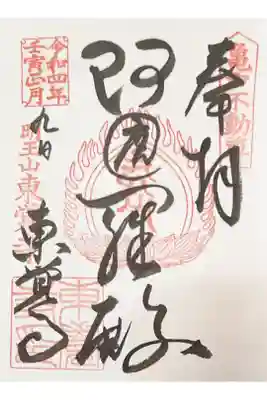 奉拝
亀戸不動尊
阿遮羅殿
令和四年
壬寅正月
九日
明王山東
東覺寺